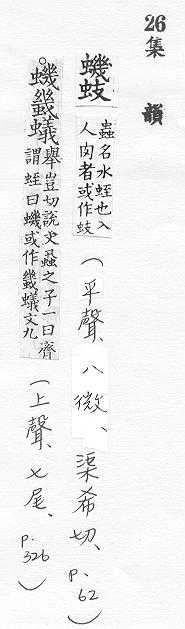 26 集韻
蟣蚑 蟲名水蛭也入
人肉者或作蚑
(平聲、八微、渠希切、p.62)
。蟣蟣蟻 舉豈切說文蝨之子一曰齊
謂蛭曰蟣或作蟣蟻文九
(上聲、七尾、p.326)